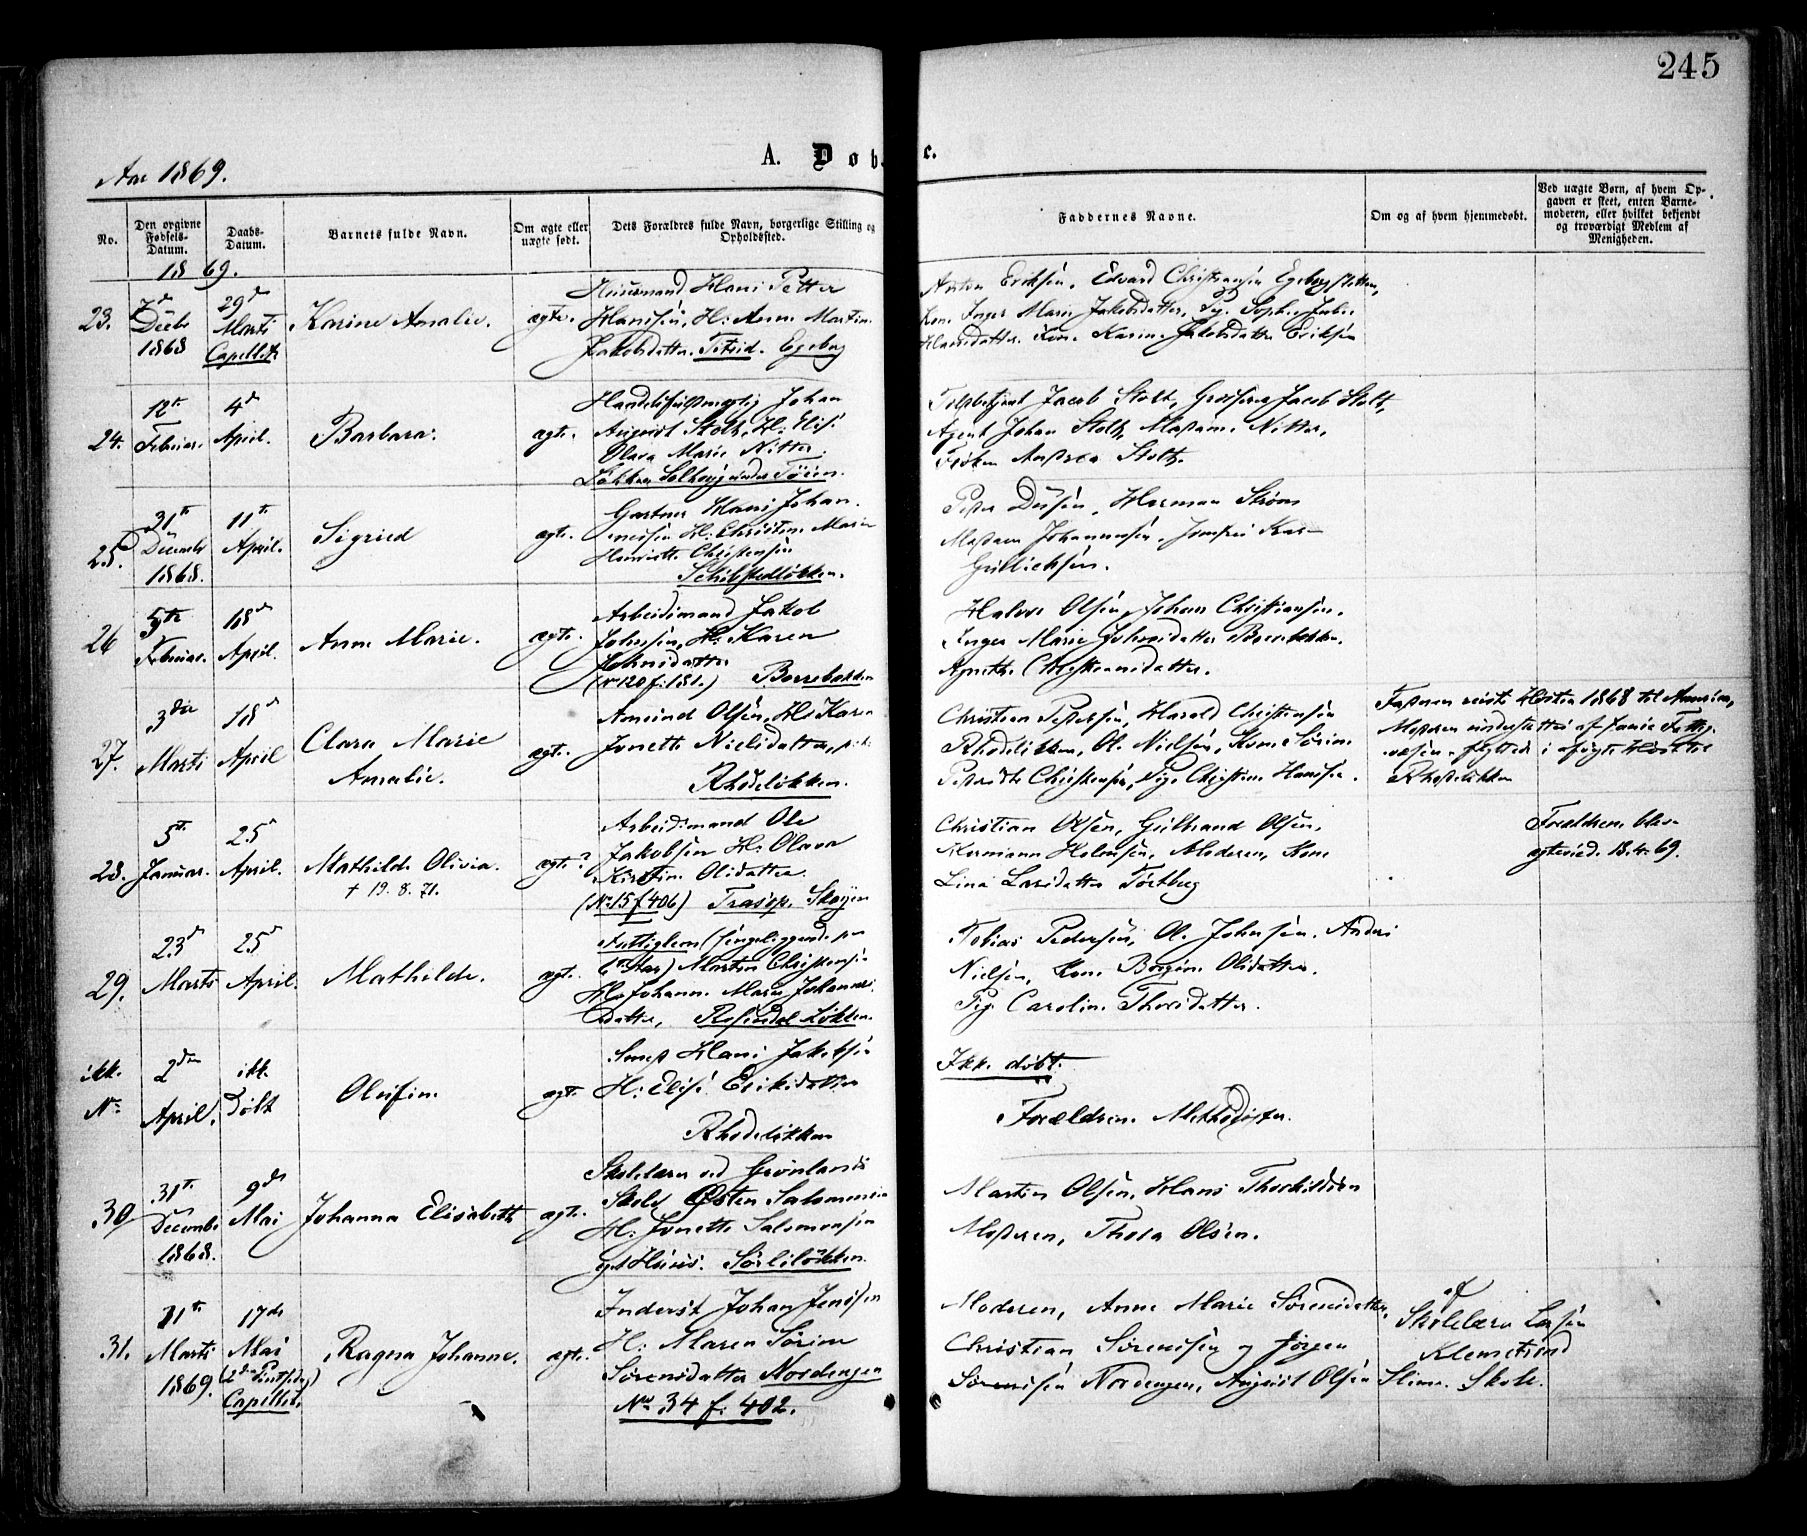 245
Aar 1869.
A. Døb c.
No.
Den opgivne Fødsels-Datum.
Daabs-Datum.
Barnets fulde Navn.
Om ægte eller uægte født.
Dets Forældres fulde Navn, borgerlige Stilling og Opholdssted.
Faddernes Navne.
Om og af hvem hjemmedøbt.
Ved uægte Børn, af hvem Opgaven er skeet, enten Barnemoderen, eller hvilket bekjendt og troværdigt Medlem af Menigheden.
1869.
23.
7d Decbr 1868
29d Marts Capellet
Karine Amalie.
ægte.
Huusmand Hans Petter
Hansen, H: Anne Martin.
Jakobsdatter. Egeberg
Anton Eriksen, Edvard Christiansen Egebergløkken,
Kone Inger Marie Jakobsdatter, Pig. Sophie
Hansdatter. Kone Karin Jakobsdatter Eriksen
24.
12te Februar.
4d April.
Barbara.
ægte.
Handelsfuldmægtig Johan
August Stoltz, H: Elis.
Olava Marie Nitter.
Løkken Solhaug under Tøien.
Toldbetjent Jacob Stolt, Grosserer Jacob Stolt,
Agent Johan Stoltz, Madam Nitter,
Frøken Andrea Stoltz.
25.
31te Decembr 1868.
11te April.
Sigried
ægte.
Gartner Hans Johan
nessen H: Christine Marie
Henriette Christensen
Schibstedløkken.
Peder Dussen, Herman Strøm
Madam Johannesen, Jomfru
Gulbichsen.
26
5te Februar.
18d April.
Anne Marie.
ægte.
Arbeidsmand Jakob
Johnsen, H: Karen
Johnsdatter
(No 120 f: 181.) Borrebakken
Halvor Olsen, Johan Christiansen,
Inger Marie Johnsdatter Borrebakken.
Agnethe Christiansdatter.
27.
3die Marts
18d April
Clara Marie
Amalie.
ægte.
Amund Olsen, H: Karen
Jonette Nielsdatter,
Rhodeløkken.
Christian Pedersen, Harald Christensen
Rhodeløkken, Ol. Nielsen, Kone Sørine
Christensen, Pige Christine Hansen.
Faderen reist Høsten 1868 til Amerika,
Moderen understøttes af Fattig-
væsen, flyttede i afvigte Høst til
Rhodeløkken
28.
5te Januar.
25d April.
Mathilde Olivia.
† 19. 8. 71.
ægte?
Arbeidsmand Ole
Jakobsen H: Olava
Kirstine Olsdatter.
(No 15 f 406) Trasop. Skøyen
Christian Olsen, Gulbrand Olsen,
Hermann Halvorsen, Moderen, Kone
Lina Larsdatter Tørtberg
Forældrene blev
ægteviet 18.4.69.
29.
23d Marts
25d April.
Mathilde.
ægte.
Fattiglem (sengeliggende paa
6te Aar) Martin Christensen
H: Johanne Marie Johannes-
datter, Rosendal Løkken.
Tobias Pedersen, Ol. Johnsen, Anders
Nielsen, Kone Olsdatter.
Pig. Caroline Thorsdatter.
ikk. No
2den April.
ikk. Døbt
Olufine.
ægte.
Smed Hans Jakobsen
H: Elise Eriksdatter
Rhodeløkken
Ikk. døbt.
Forældrene Methodister.
30
31te Decembr 1868.
9de Mai
Johanna Elisabeth
ægte.
Skolelærer ved Grønlands
Skole Østen Salomonsen
H: Jonette Salomonsen
eget Huus. Sørliløkken.
Martin Olsen, Hans Thorkildsen
Moderen, Thora Olsen.
31.
11te Marts 1869.
17de Mai
(2den Pintsedag)
Capellet.
Ragna Johanne.
ægte.
Inderst Johan Jenssen
H: Maren Sørine
Sørensdatter Nordengen
No 34 f. 402.
Moderen, Anne Marie Sørensdatter,
Christian Sørensen og Jørgen
Sørensen Nordengen, August Olsen
af
Skolelærer Larsen
Klemetsrud
Skole.